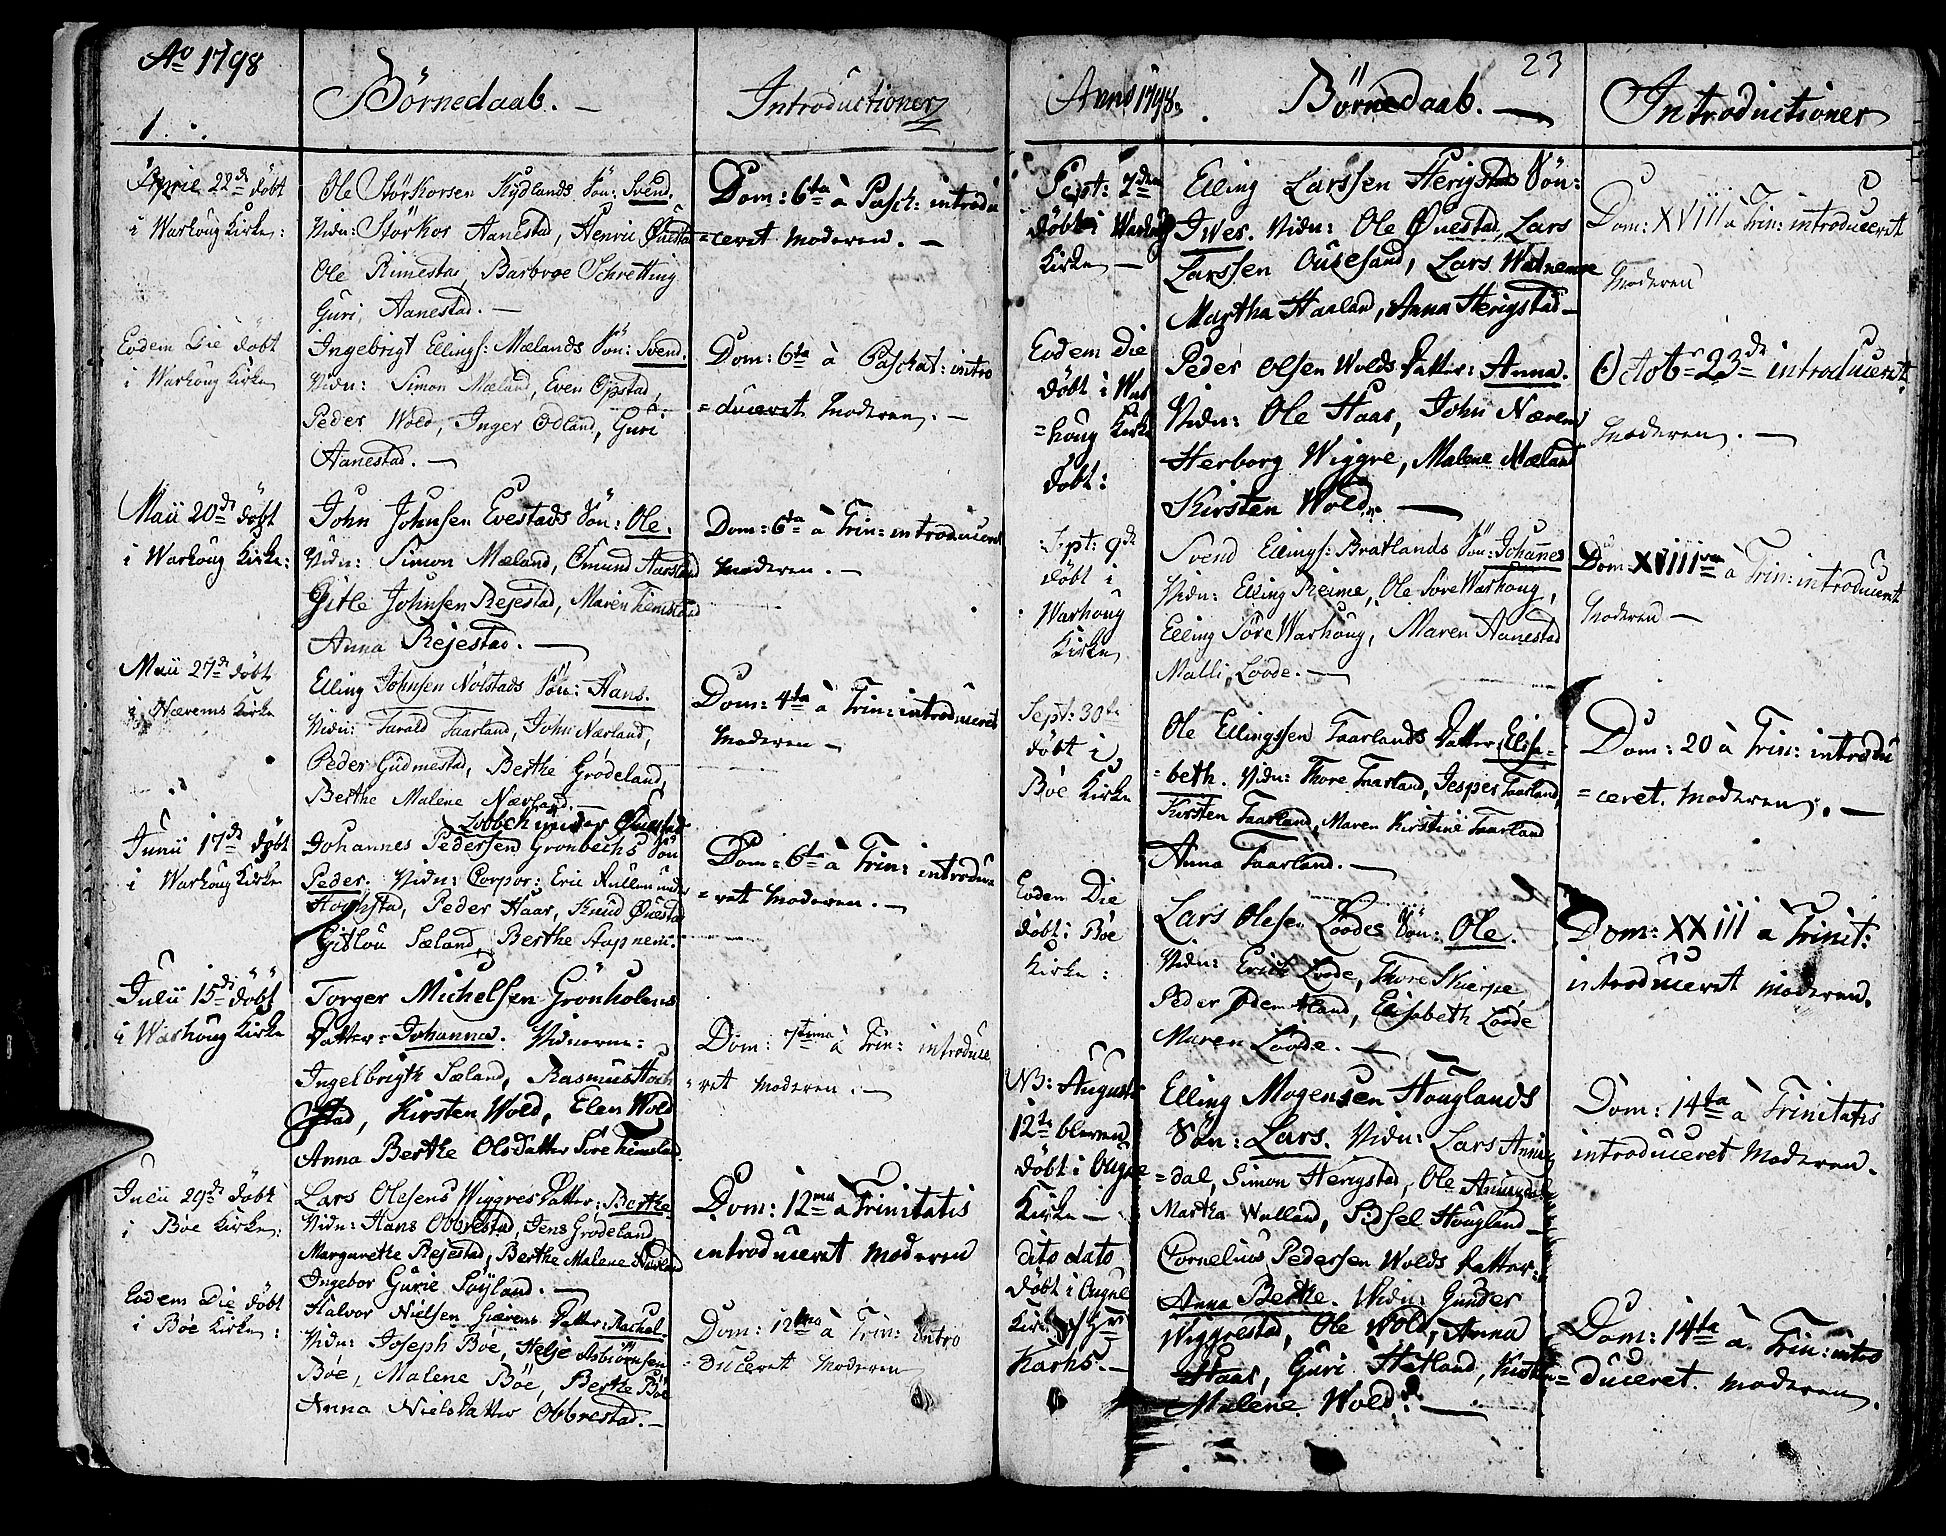 Ao 1798
Börnedaab. —
Introductioner
1.
April 22de döbt
i Warhoug Kirke:
Ole Störkorsen Kydlands Sön: Svend.
Vidn: Störkor Aanestad, Henric Qvestad
Ole Rimestad, Barbroe Schretting
Guri Aanestad. —
Dom: 6ta à Pasch: introdu
=ceret Moderen. —
Eodem Die döbt
i Warhoug Kirke
Ingebrigt Ellings: Mælands Sön: Svend.
Vidn: Simon Mæland, Even Opstad,
Peder Wold, Inger Odland, Guri
Aanestad. —
Dom: 6ta à Paschat: intro
=duceret Moderen. —
Maii 20de döbt
i Warhoug Kirke:
John Johnsen Evestads Sön: Ole.
Vidn: Simon Mæland, Osmund Aarstad
Gitle Johnsen Rejestad, Maren Tiemstad
Anna Rejestad. —
Dom: 6ta à Trin: introduceret
Moderen. —
Maii 27de döbt
i Nærems Kirke
Elling Johnsen Nolstads Sön: Hans.
Vidn: Tarald Taarland, John Nærland,
Peder Gudmestad, Berthe Grödeland,
Berthe Malene Nærland. —
Dom: 4ta à Trin: introduceret
Moderen —
Junii 17de döbt
i Warhoug Kirke
Johannes Pedersen Grönbechs Sön
Peder. Vidn: Corpor: Eric Hullen under
Høghstad, Peder Haar, Knud Qvestad
Gitlou Sæland, Berthe Stapnem.
Dom: 6ta à Trin: introduce
=ret Moderen. —
Julii 15de döbt
i Warhoug Kirke
Torger Michelsen Grönholms
Datter: Johanna. Vidnerne:
Ingelbrigth Sæland, Rasmus Höch
stad, Kirsten Wold, Elen Wold
Anna Berthe Olsdatter Söre Tiemstad.
Dom: 7tima à Trin: introduce
=ret Moderen. —
Julii 29de döbt
i Böe Kirke:
Lars Olesens Wiggres Datter: Berthe
Vidn: Hans Obbrestad, Jens Grödeland
Margarethe Rejestad, Berthe Malene Nærland
Ingebor Gurie Söyland. —
Dom: 12ma à Trinitatis
introduceret Moderen
Eodem Die döbt
i Böe Kirke:
Halvor Nielsen Giærems Datter: Rachel.
Vidn: Joseph Böe, Helje Asbiörnsen
Böe, Malene Böe, Berthe Böe
Anna Nielsdatter Obbrestad. —
Dom: 12ma à Trin: intro
=duceret Moderen
23
Anno 1798.
Börnedaab. —
Introductioner
Sept: 2den
döbt i Warhoug
Kirke —
Elling Larssen Herigstads Sön:
Iwes. Vidn: Ole Qvestad, Lars
Larssen Ousesand, Lars Watnemoe
Martha Haaland, Anna Herigstad —
Dom: XVIII à Trin: introduceret
Moderen
Eodem Die
döbt i War
=houg Kirke
döbt:
Peder Olsen Wolds Datter: Anna.
Vidn: Ole Haar, John Nærem
Herborg Wiggre, Malene Mæland
Kirsten Wold. —
Octobr 23de introduceret
Moderen. —
Sept: 9de
döbt i
Warhoug
Kirke
Svend Ellings: Bratlands Sön: Johannes
Vidn: Elling Reime, Ole Sore Warhoug,
Elling Söre Warhoug, Maren Aanestad
Malli Loode. —
Dom: XVIIIva à Trin: introduceret
Moderen —
Sept: 30te
döbt i
Böe Kirke
Ole Ellingssen Taarlands Datter Elisa=
=beth. Vidn: Thore Taarland, Jesper Taarland,
Kirsten Taarland, Maren Kirstine Taarland
Anna Taarland. —
Dom: 20 à Trin: introdu
=ceret Moderen. —
Eodem Die
döbt i Böe
Kirke:
Lars Olesen Loodes Sön: Ole.
Vidn: Erich Loode, Thore Skierpe
Peder ØdemHand, Elisabeth Loode
Maren Loode. —
Dom: XXIII à Trinit:
introduceret Moderen.
NB: Augusti
12te bleven
döbt i Ougne
Kirke —
Elling Mogensen Houglands
Sön: Lars. Vidn: Lars Anni
=dal, Simon Herigstad, Ole
Martha Walland, Sidsel Hougland —
Dom: 14ta à Trinitatis
introduceret Moderen.
dito dato
döbt i Ougne
Kirke
Karhs. —
Cornelius Pedersen Wolds Datter:
Anna Berthe. Vidn: Gunder
Wiggrestad, Ole Wold, Anna
Haar, Guri Hetland, Kirsten
Malene Wold. —
Dom: 14ta à Trin: intro
=duceret Moderen.